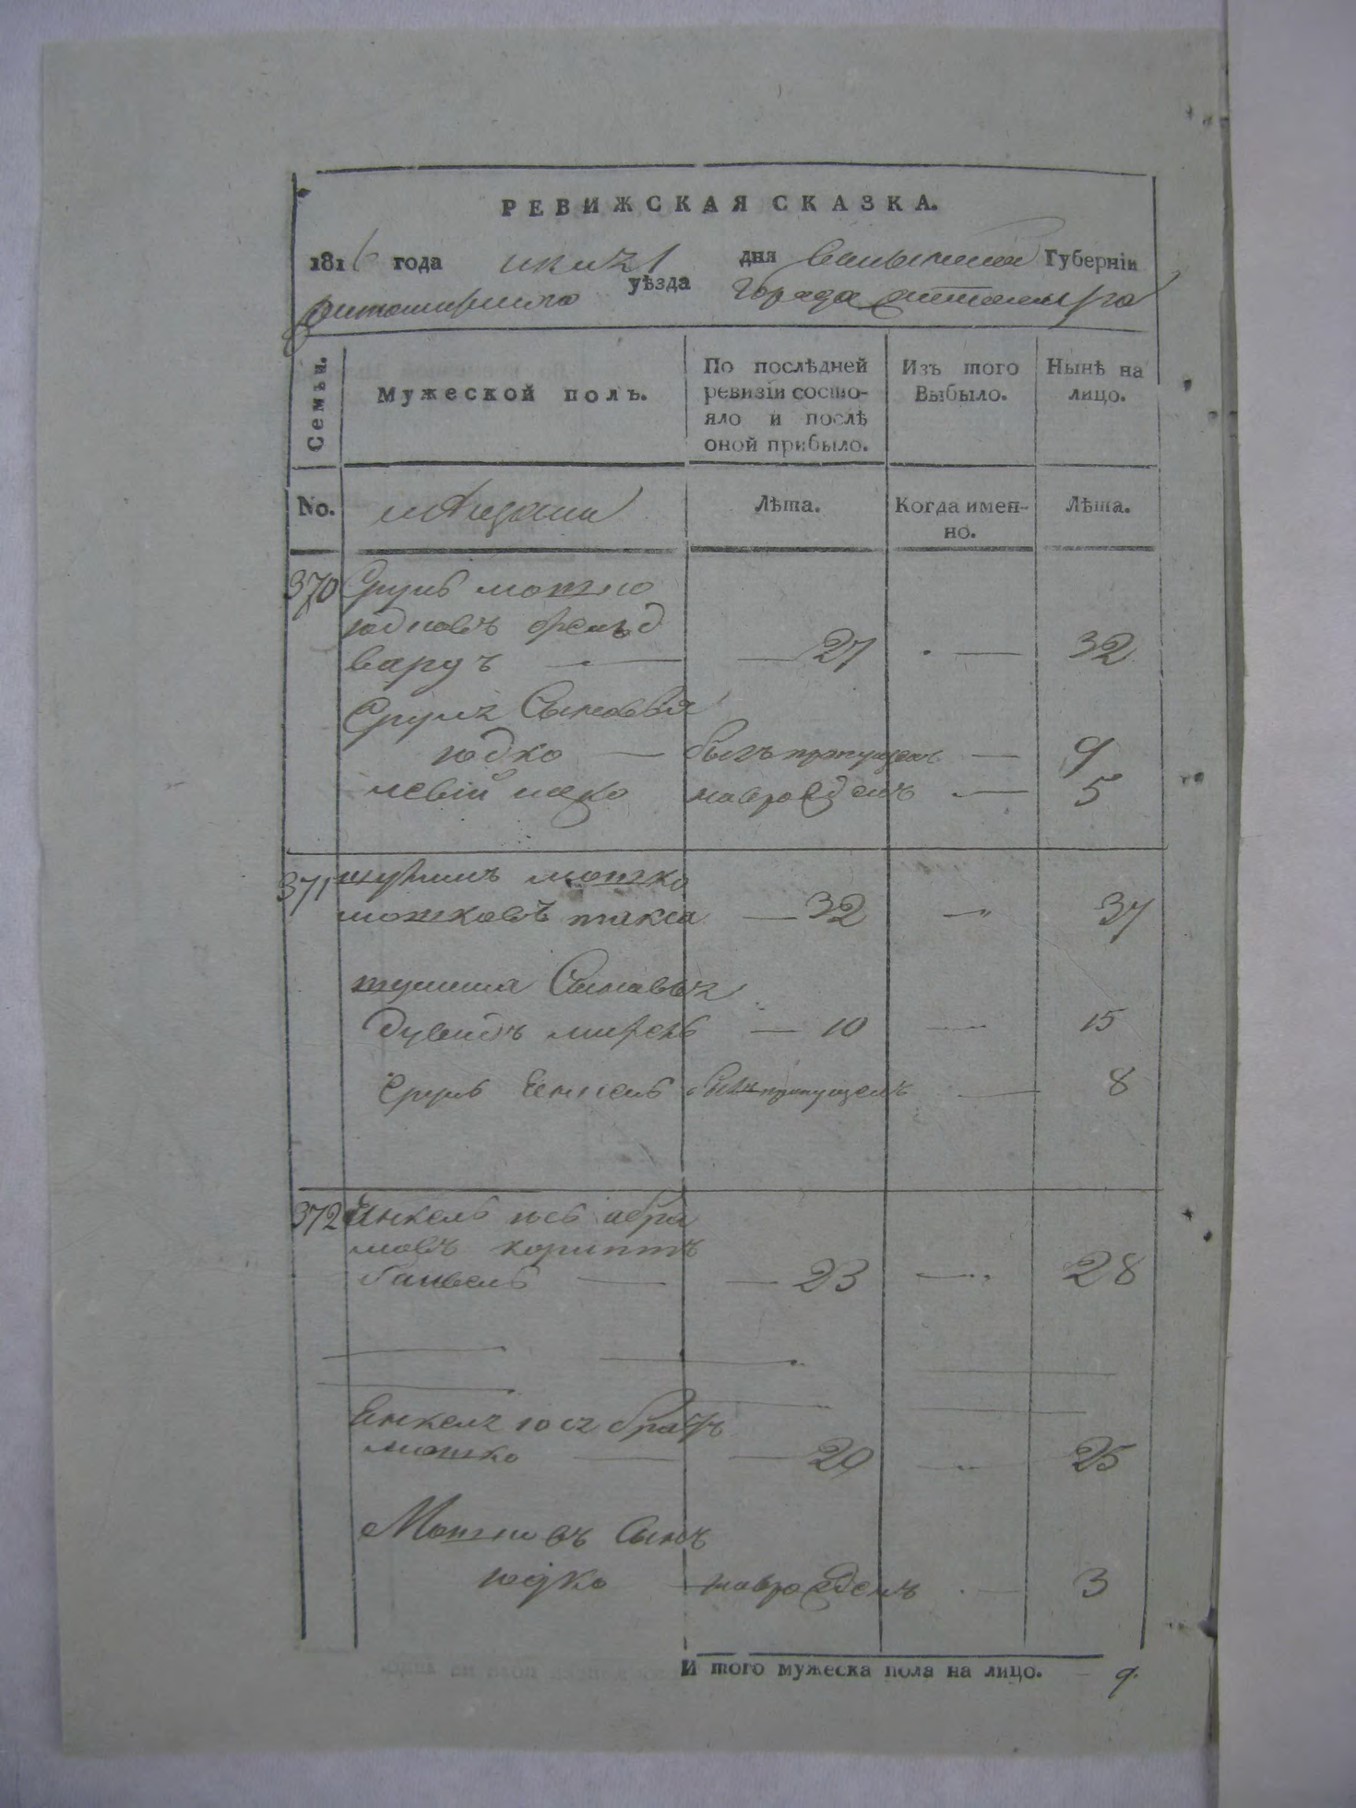 РЕВИЖСКАЯ СКАЗКА.
1816 года июля 21 дня Волынской Губерніи
Житомирского уѣзда города Житомира
Семьи.
Мужеской полъ.
По послѣдней ревизіи состояло и послѣ оной прибыло.
Изъ того Выбыло.
Нынѣ на лицо.
No.
Лѣта.
Когда именно.
Лѣта.
370 Сруль мошко
юдковъ
вардъ — 27 — 32
Сруля Сыновья
юдко — былъ пропущенъ — 9
левій ицко новорожденъ — 5
371 шулимъ мошко
мошковъ такса — 32 — 37
шулима Сыновья
Дувидъ меръ — 10 — 15
Сруль Енкель былъ пропущенъ — 8
372 Янкель юсь абра
мовъ
— 23 — 28
Енкеля юся братъ
мошко — 20 — 25
Мошковъ Сынъ
юдко новорожденъ — 3
И того мужеска пола на лицо. — 9.